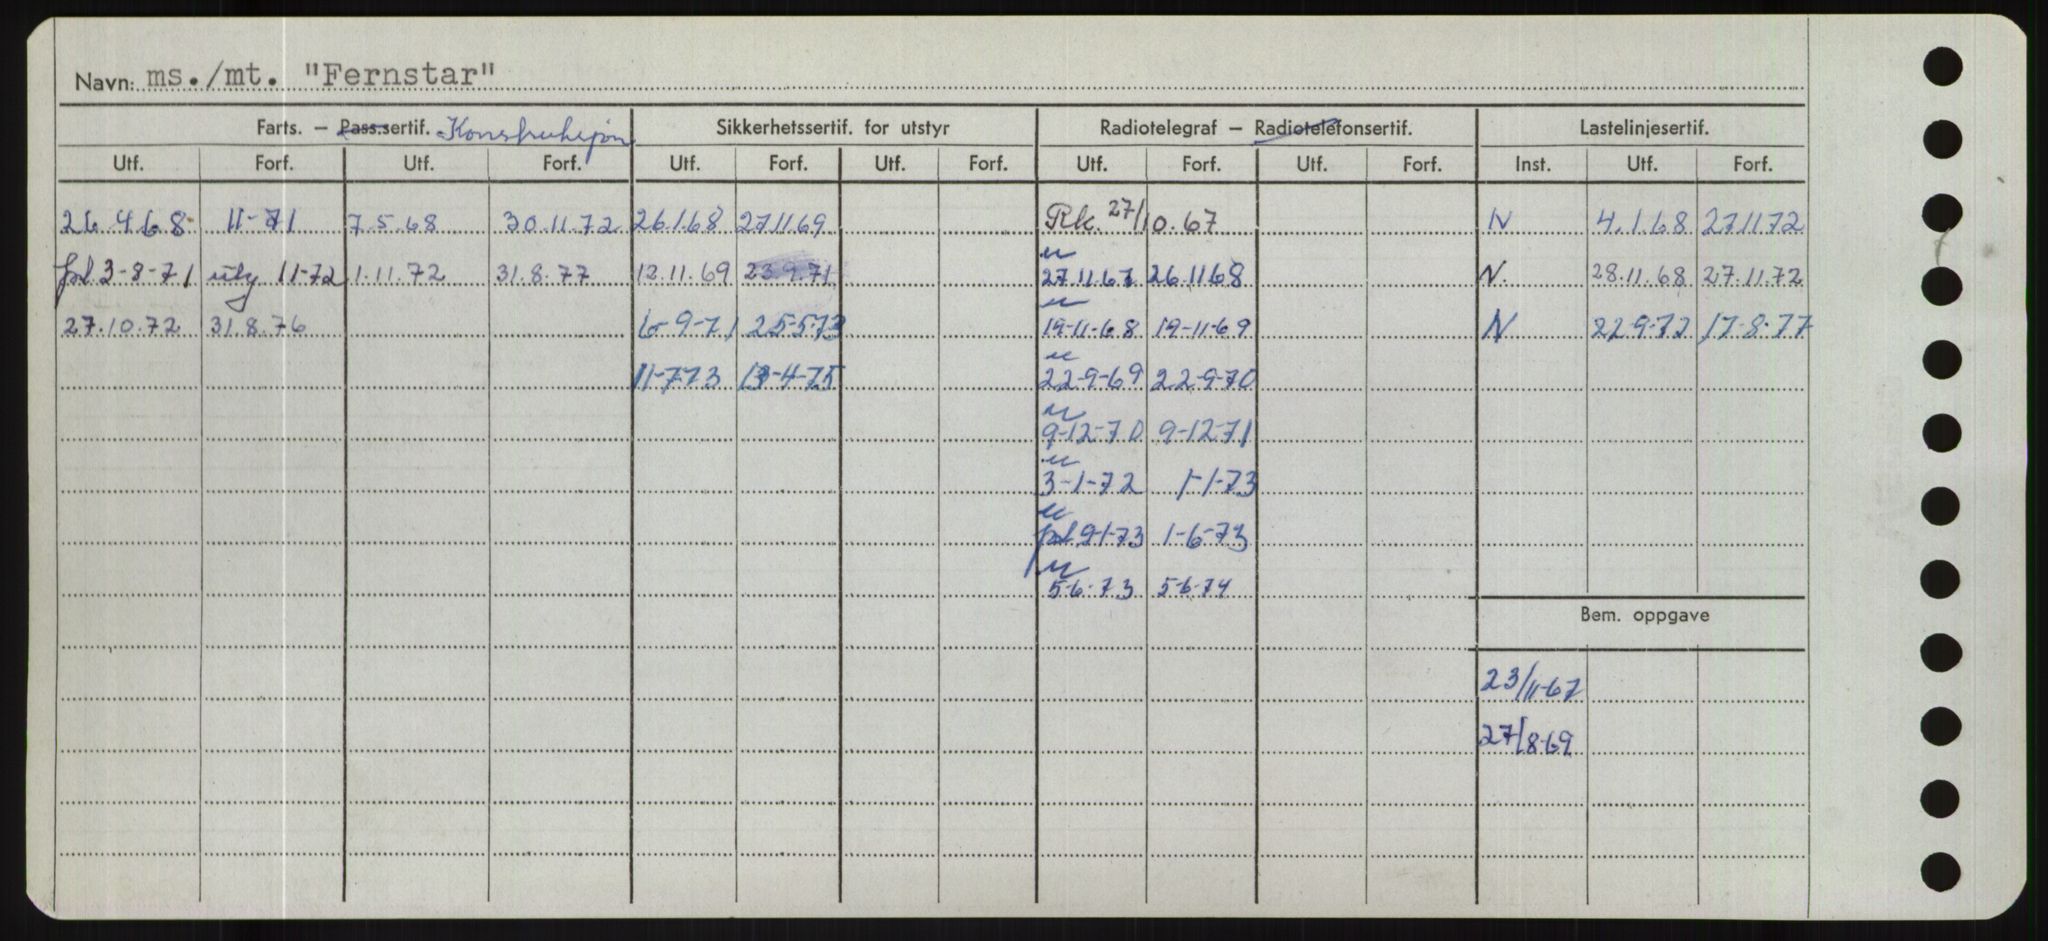 Navn: ms./mt. "Fernstar"
Farts. – Pass.sertif. Konstruksjon Sikkerhetssertif. for utstyr Radiotelegraf – Radiotelefonsertif. Lastelinjesertif.
Utf. Forf. Utf. Forf. Utf. Forf. Utf. Forf. Utf. Forf. Utf. Forf. Inst. Utf. Forf.
26.4.68 11-71 7.5.68 30.11.72 26.1.68 27.11.69 Rk. 27/10.67 N 4.1.68 27.11.72
u
3-8-71 utg 11-72 1.11.72 31.8.77 12.11.69 23.9.71 27.11.67 26.11.68 N. 28.11.68 27.11.72
u
27.10.72 31.8.76 6-9-71 25-5-73 19-11-68 19-11-69 N 22-9-72 17-8-77
u
11-7-73 13-4-75 22-9-69 22-9-70
u
9-12-70 9-12-71
u
3-1-72 1-1-73
u
9-1-73 1-6-73
u
5-6-73 5-6-74
Bem. oppgave
23/11-67
27/8-69